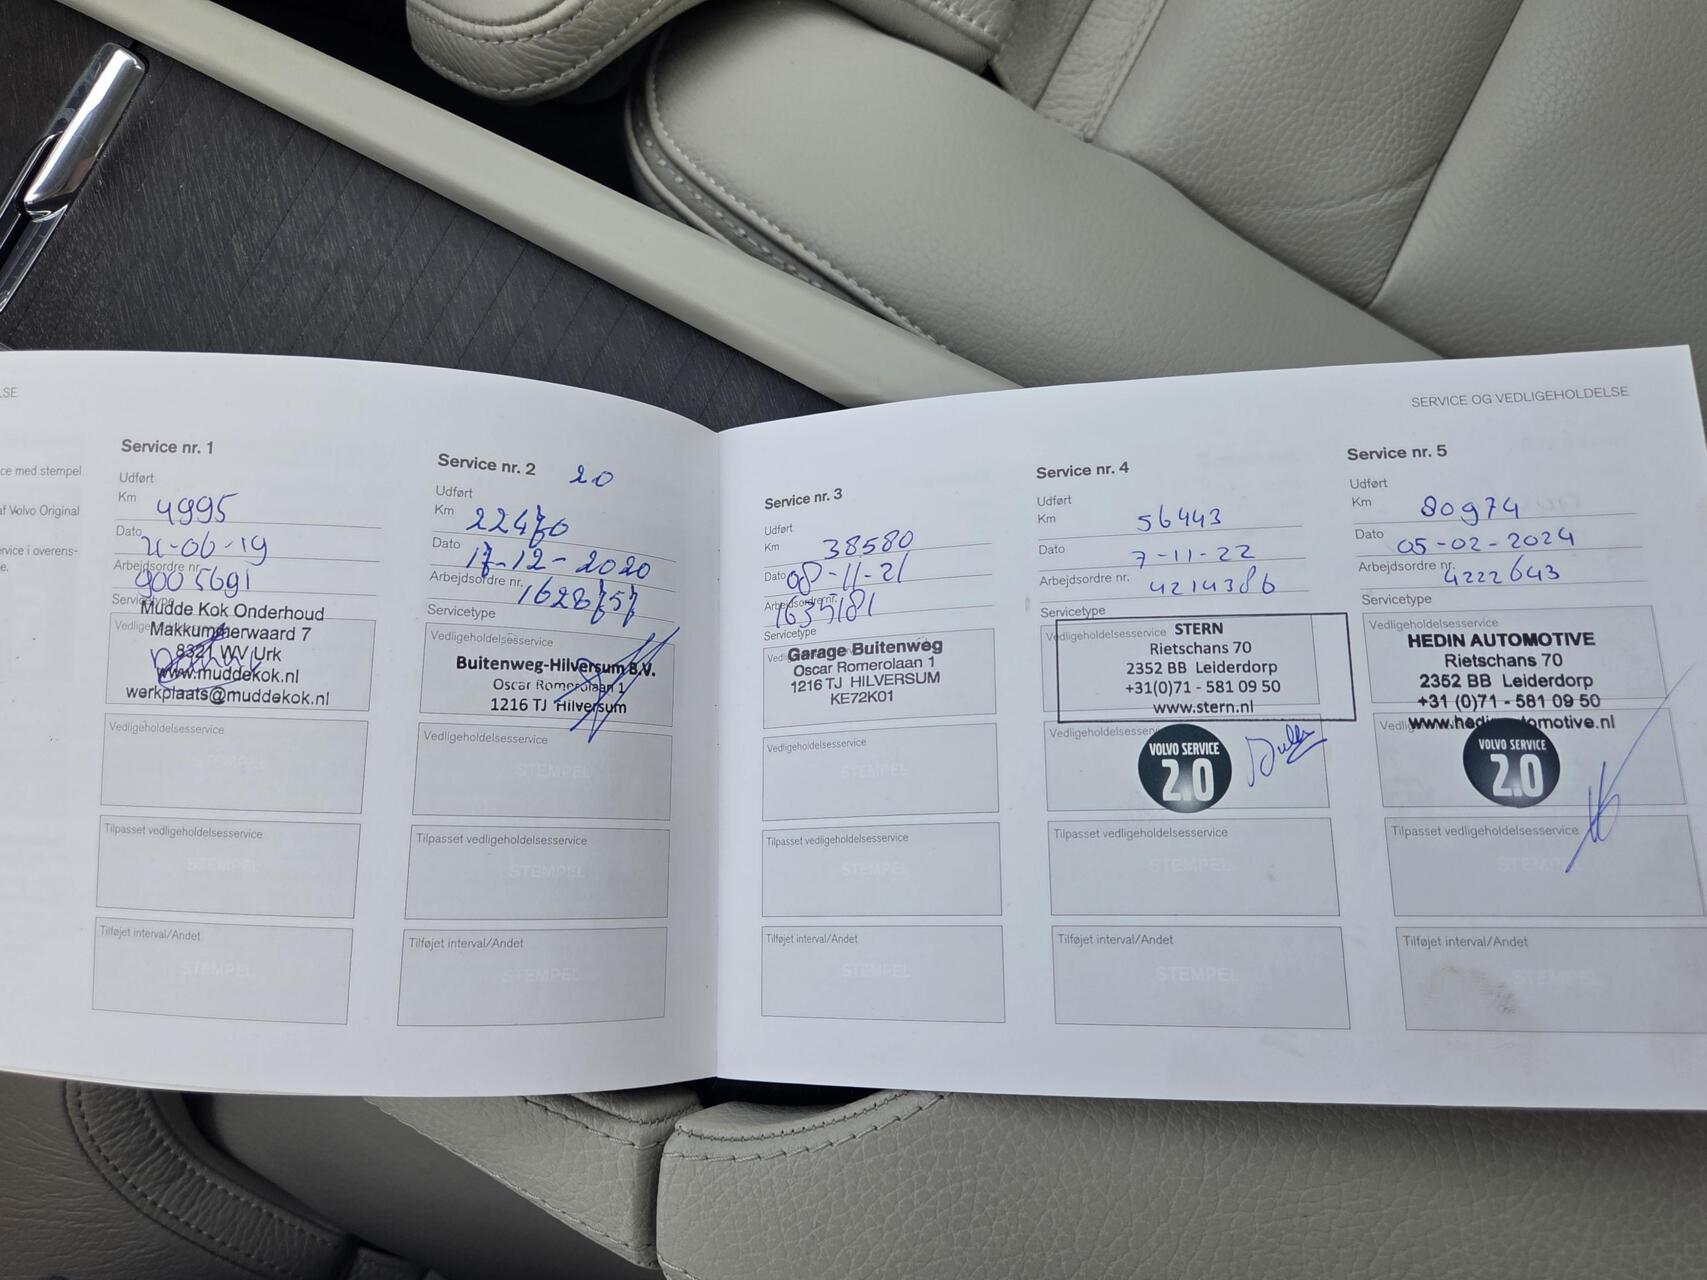 LSE
SERVICE OG VEDLIGEHOLDELSE
ce med stempel
af Volvo Original
rvice i overens-
e.
Service nr. 1
Udført
Km 4995
Dato 21-06-19
Arbejdsordre nr.
9005691
Servicetype
Mudde Kok Onderhoud
Makkummerwaard 7
8321 WV Urk
www.muddekok.nl
werkplaats@muddekok.nl
Vedligeholdelsesservice
STEMPEL
Tilpasset vedligeholdelsesservice
STEMPEL
Tilføjet interval/Andet
STEMPEL
Service nr. 2 2.0
Udført
Km 22470
Dato 17-12-2020
Arbejdsordre nr. 1628757
Servicetype
Vedligeholdelsesservice
Buitenweg-Hilversum B.V.
Oscar Romerolaan 1
1216 TJ Hilversum
Vedligeholdelsesservice
STEMPEL
Tilpasset vedligeholdelsesservice
STEMPEL
Tilføjet interval/Andet
STEMPEL
Service nr. 3
Udført
Km 38580
Dato 08-11-21
Arbejdsordre nr.
1635181
Servicetype
Garage Buitenweg
Oscar Romerolaan 1
1216 TJ HILVERSUM
KE72K01
Vedligeholdelsesservice
STEMPEL
Tilpasset vedligeholdelsesservice
STEMPEL
Tilføjet interval/Andet
STEMPEL
Service nr. 4
Udført
Km 56443
Dato 7-11-22
Arbejdsordre nr. 4214386
Servicetype
Vedligeholdelsesservice
STERN
Rietschans 70
2352 BB Leiderdorp
+31(0)71 - 581 09 50
www.stern.nl
Vedligeholdelsesserv
VOLVO SERVICE
2.0
Tilpasset vedligeholdelsesservice
STEMPEL
Tilføjet interval/Andet
STEMPEL
Service nr. 5
Udført
Km 80974
Dato 05-02-2024
Arbejdsordre nr. 4222643
Servicetype
Vedligeholdelsesservice
HEDIN AUTOMOTIVE
Rietschans 70
2352 BB Leiderdorp
+31 (0)71 - 581 09 50
www.hedinautomotive.nl
VOLVO SERVICE
2.0
Tilpasset vedligeholdelsesservice
STEMPEL
Tilføjet interval/Andet
STEMPEL